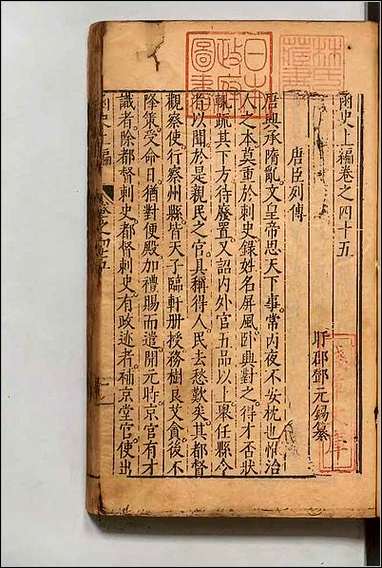 函史上編卷之四十五
盱郡鄧元錫纂
唐臣列傳
唐興承隋亂文皇帝思天下事常丙夜不安枕也惟治
人之本莫重於刺史錄姓名屏風臥興對之得才否狀
輒疏其下方待廢置又詔內外官五品以上舉任縣令
者以聞於是親民之官具稱得人民去愁歎矣其都督
觀察使行察州縣皆天子臨軒册授務樹良艾貪後不
降策受命日猶對便殿加禮賜而遣開元時京官有才
識者除都督刺史都督刺史有政迹者補京堂官使出
函史上編
卷之四十五
日本
政府
圖書